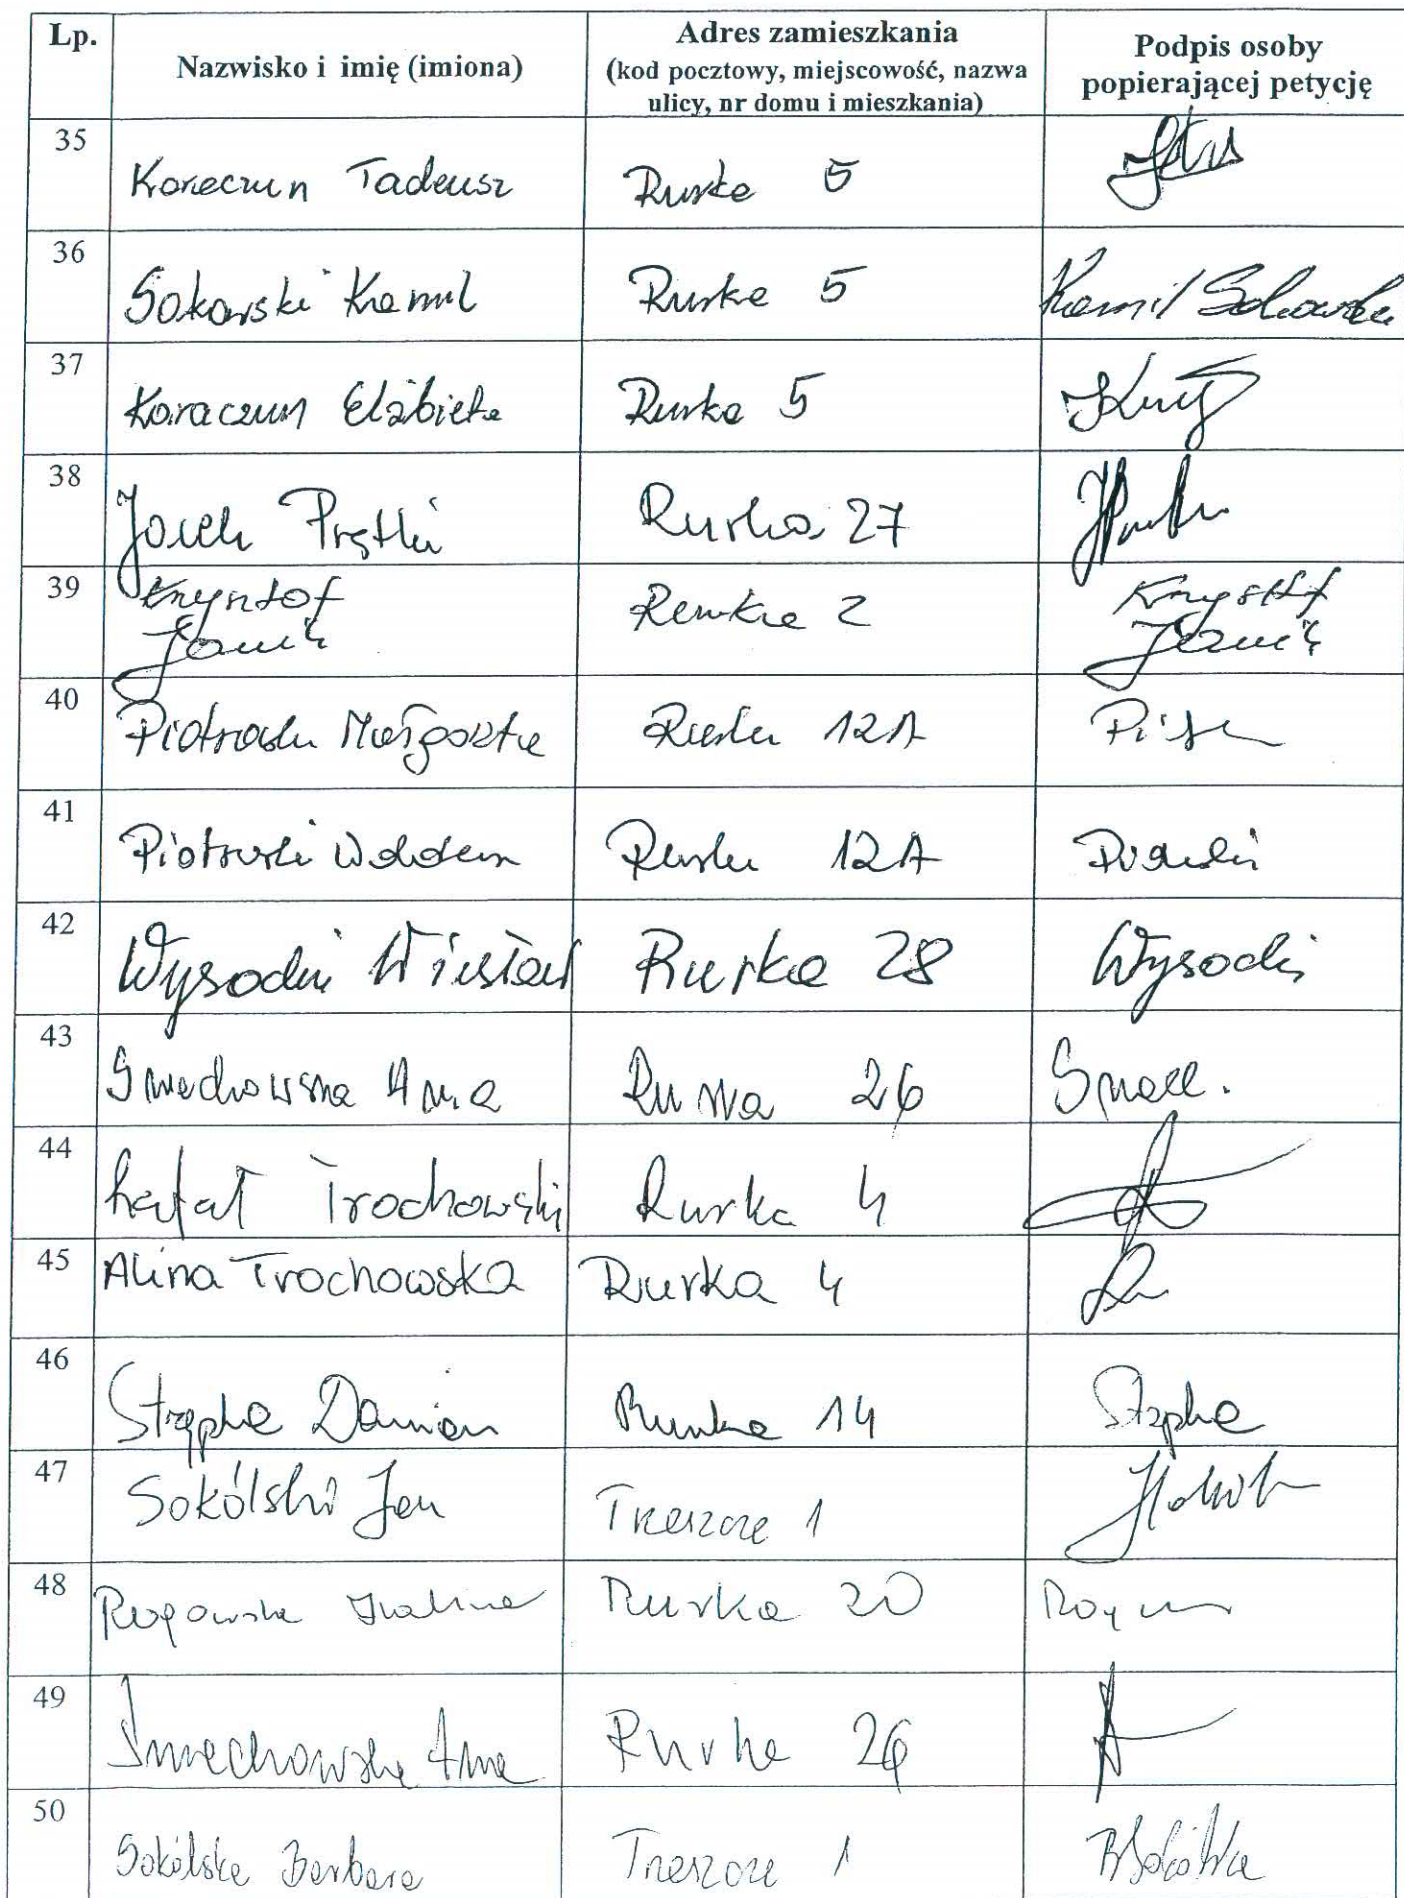 Lp.
Nazwisko i imię (imiona)
Adres zamieszkania
(kod pocztowy, miejscowość, nazwa
ulicy, nr domu i mieszkania)
Podpis osoby
popierającej petycję
35
Koraczun Tadeusz
Rurka 5
36
Sokorski Kamil
Rurka 5
Kamil
37
Koraczun Elżbieta
Rurka 5
38
Jacek
Rurka 27
39
Krzysztof
2
Krzysztof
40
Piotrowska Małgorzata
Rurka 12A
41
Piotrowski Waldemar
Rurka 12A
42
Wysocki Wiesław
Rurka 28
Wysocki
43
Smiechowska Anna
Rurka 26
44
Rafał Trochowski
Rurka 4
45
Alina Trochowska
Rurka 4
46
Strąpka Damian
Rurka 14
47
Sokólski Jan
Treszcze 1
48
Rogowska Halina
Rurka 20
49
Śmiechowska Anna
Rurka 26
50
Sokólska Barbara
Treszcze 1